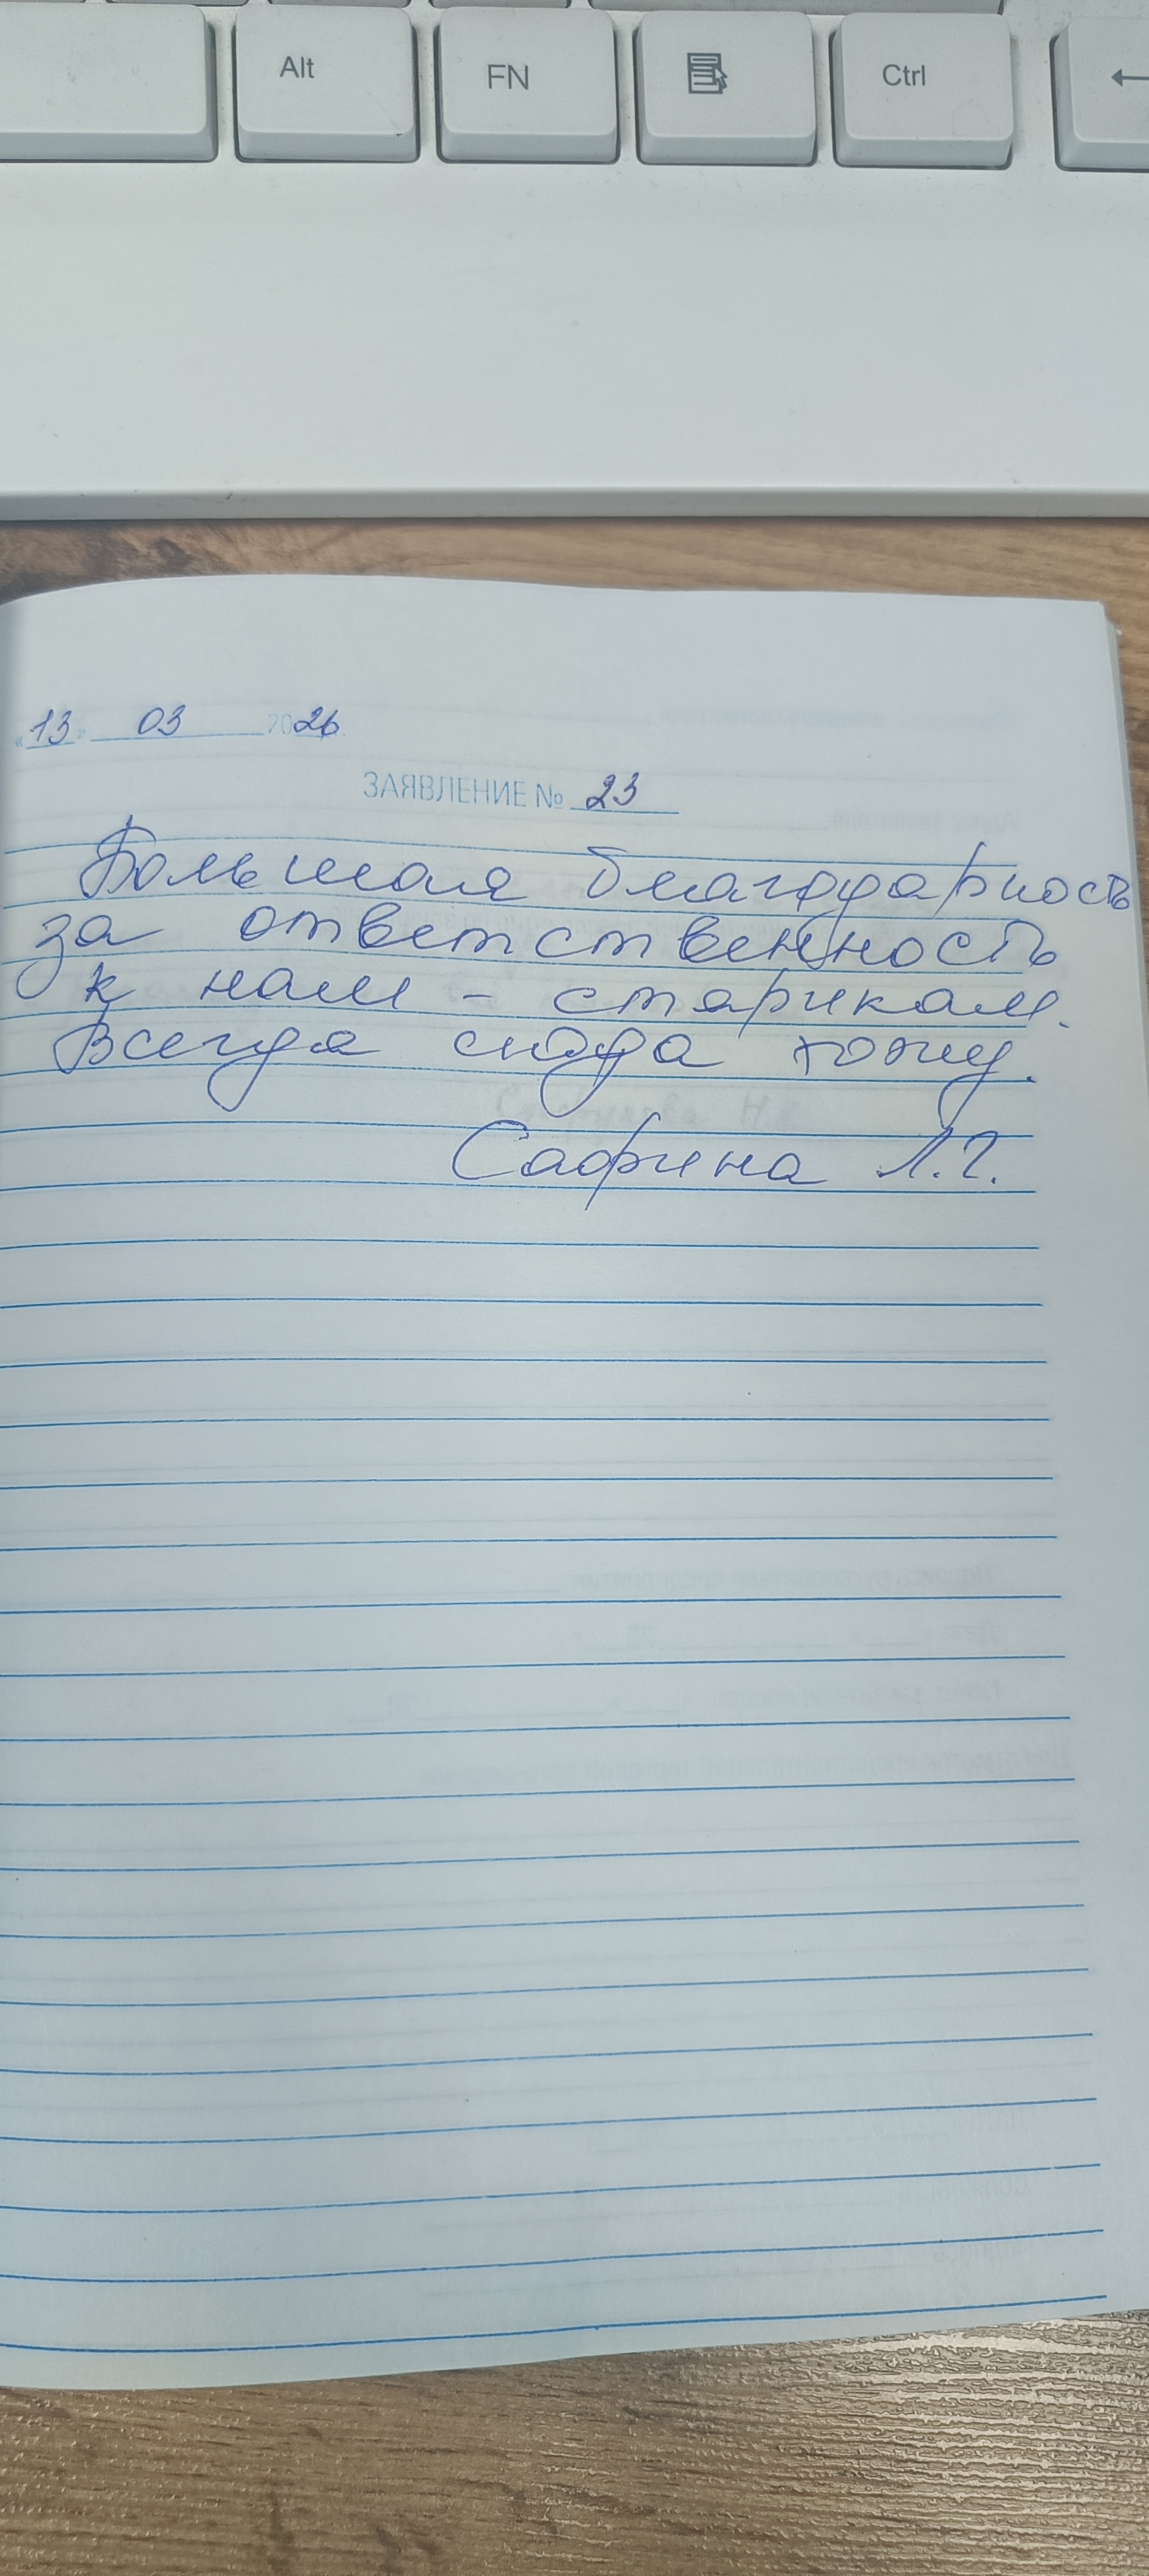 Alt
FN
Ctrl
←
«13» 03 2026
ЗАЯВЛЕНИЕ № 23
Большая благодарность
за ответственность
к нам - старикам.
Всегда сюда хожу.
Сафина Л.Г.